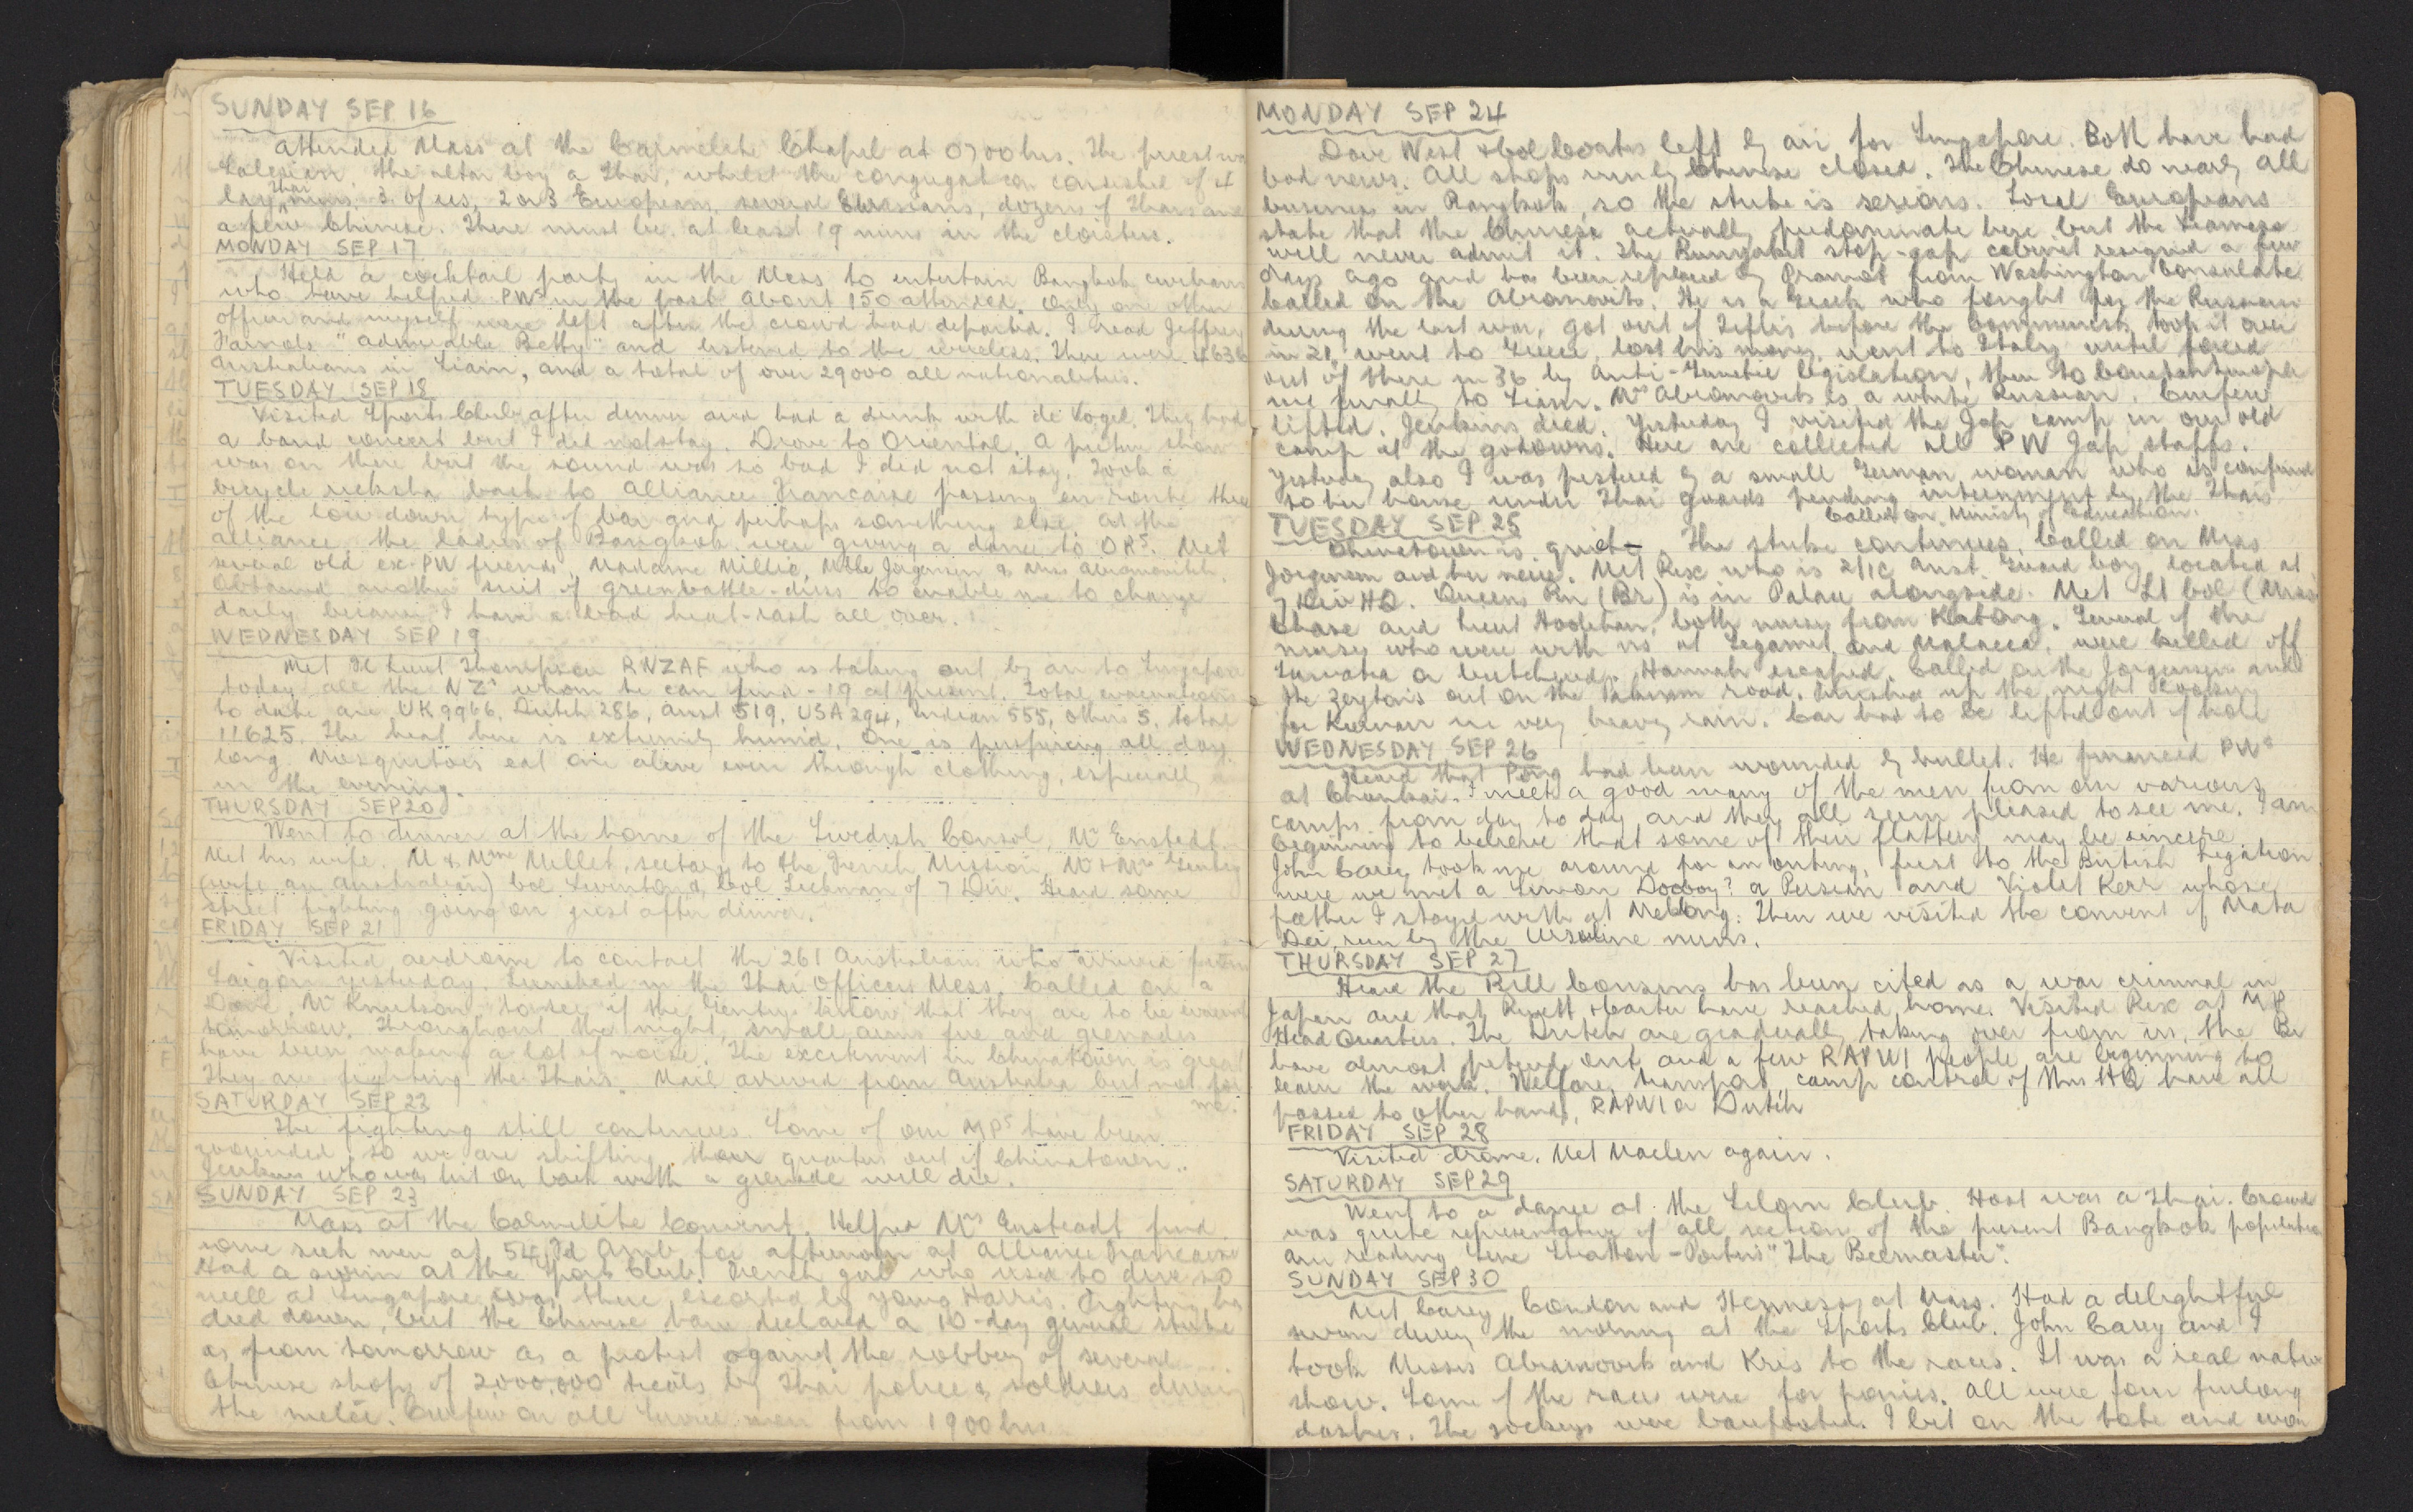 SUNDAY SEP 16
Attended Mass at the Carmelite Chapel at 0700 hrs. The priest was
Salesian, the altar boy a Thai, whilst the congregation consisted of 4
lay Thai nuns, 3 of us, 2 or 3 Europeans, several Eurasians, dozens of Thais and
a few Chinese. There must be at least 19 nuns in the cloisters.
MONDAY SEP 17
Held a cocktail party in the Mess to entertain Bangkok civilians
who have helped PWs in the past. About 150 attended. Only one other
officer and myself were left after the crowd had departed. I read Jeffrey
Farnols "Admirable Betty" and listened to the wireless. There were 4636
Australians in Siam, and a total of over 29000 all nationalities.
TUESDAY SEP 18
Visited Sports Club after dinner and had a drink with de Vogel. They had
a band concert but I did not stay. Drove to Oriental. A picture show
was on there but the sound was so bad I did not stay. Took a
bicycle ricksha back to Alliance Francaise passing en route three
of the low down type of bar and perhaps something else. At the
alliance the ladies of Bangkok were giving a dance to ORs. Met
several old ex-PW friends, Madame Millie, Mdlle Jorgensen & Miss Abramovitch.
Obtained another suit of green battle-dress to enable me to change
daily because I have a bad heat-rash all over.
WEDNESDAY SEP 19
Met Fl Lieut Thompson RNZAF who is taking out by air to Singapore
today all the NZs whom he can find - 19 at present. Total evacuations
to date are UK 9966, Dutch 286, Aust 519, USA 294, Indian 555, others 5, total
11625. The heat here is extremely humid. One is perspiring all day
long. Mosquitoes eat one alive even through clothing, especially
in the evening.
THURSDAY SEP 20
Went to dinner at the home of the Swedish Consol, Mr Enstedt.
Met his wife. M & Mme Millet, secretary to the French Mission, Mr & Mrs
(wife an Australian) Col Col of 7 Div. Heard some
street fighting going on just after dinner.
FRIDAY SEP 21
Visited aerdrome to contact the 261 Australians who arrived from
Saigon yesterday. Lunched in the Thai Officers Mess. Called on a
Dane, Mr Knutson to see if the know that they are to be evacuated
tomorrow. Throughout the night, small arms fire and grenades
have been making a lot of noise. The excitement in Chinatown is great
They are fighting the Thais. Mail arrived from Australia but not for
me.
SATURDAY SEP 22
The fighting still continues. Some of our MPs have been
wounded, so we are shifting their quarters out of Chinatown.
Jenkins who was hit on back with a grenade will die.
SUNDAY SEP 23
Mass at the Carmelite Convent. Helped Mrs Ensteadt find
some sick men at 54 Fd Amb for afternoon at Alliance Francaise
Had a swim at the Sports Club. French girl who used to dive so
well at Singapore was there, escorted by young Harris. Fighting has
died down, but the Chinese have declared a 10-day general strike
as from tomorrow as a protest against the robbery of several
Chinese shops of 2,000,000 ticals by Thai police & soldiers during
the melée. Curfew on all Service men from 1900 hrs.
MONDAY SEP 24
Dave West & Col Coates left by air for Singapore. Both have had
bad news. All shops run by Chinese closed. The Chinese do nearly all
business in Bangkok, so the strike is serious. Local Europeans
state that the Chinese actually predominate here but the Siamese
will never admit it. The stop-gap cabinet resigned a few
days ago and has been replaced by Pramot from Washington Consulate
Called on the Abramovits. He is a Greek who fought for the Russians
during the last war, got out of Tiflis before the Communists took it over
in 21, went to Greece, lost his money, went to Italy until forced
out of there in 36 by Anti-Semetic legislation, then to Constantinople
and finally to Siam. Mrs Abramovits is a white Russian. Curfew
lifted. Jenkins died. Yesterday I visited the Jap camp in our old
camp at the godowns. Here are collected all PW Jap staffs.
Yesterday also I was pestered by a small German woman who is confined
to her house under Thai guards pending internment by the Thais
Called on Ministry of Education.
TUESDAY SEP 25
Chinatown is quiet - The strike continues. Called on Miss
Jorgensen and her neice. Met Rex who is 2/IC Aust Guard boy, located at
7 Div HQ. Queens Rn (Br) is in Palace alongside. Met Lt Col (Miss)
Chase and Lieut Hoolihan, both nurses from Katong. Several of the
nurses who were with us at Segamat and Malacca, were killed off
Sumatra or butchered. Hannah escaped. Called on the Jorgensens and
the Zeytons out on the Paknam road. Finished up the night looking
for Kurwan in very heavy rain. Car had to be lifted out of hole
WEDNESDAY SEP 26
Heard that Pong had been wounded by bullet. He financed PWs
at Chunkai. I meet a good many of the men from our various
camps from day to day and they all seem pleased to see me. I am
beginning to believe that some of their flattery may be sincere.
John Carey took me around for an outing, first to the British Legation
were we met a Simon Docboy? a Persian and Violet Kerr whose
father I stayed with at Meklong. Then we visited the convent of Mata
Dei, run by the Ursuline nuns.
THURSDAY SEP 27
Heard the Bill Cousins has been cited as a war criminal in
Japan and that Rivett & Carter have reached home. Visited Rex at MP
Head Quarters. The Dutch are gradually taking over from us. The Br
have almost petered out and a few RAPWI people are beginning to
learn the work. Welfare, transport, camp control of this HQ have all
passed to other hands, RAPWI or Dutch
FRIDAY SEP 28
Visited drome. Met Maclen again.
SATURDAY SEP 29
Went to a dance at the Silom Club. Host was a Thai. Crowd
was quite representative of all section of the present Bangkok population
am reading Gene Stratton-Porter's "The Beemaster".
SUNDAY SEP 30
Met Carey, Condon and Hennessy at Mass. Had a delightful
swim during the morning at the Sports Club. John Carey and I
took Misses Abramovits and Kris to the races. It was a real native
show. Some of the races were for ponies. All were four furlong
dashes. The jockeys were barefooted. I bet on the tote and won